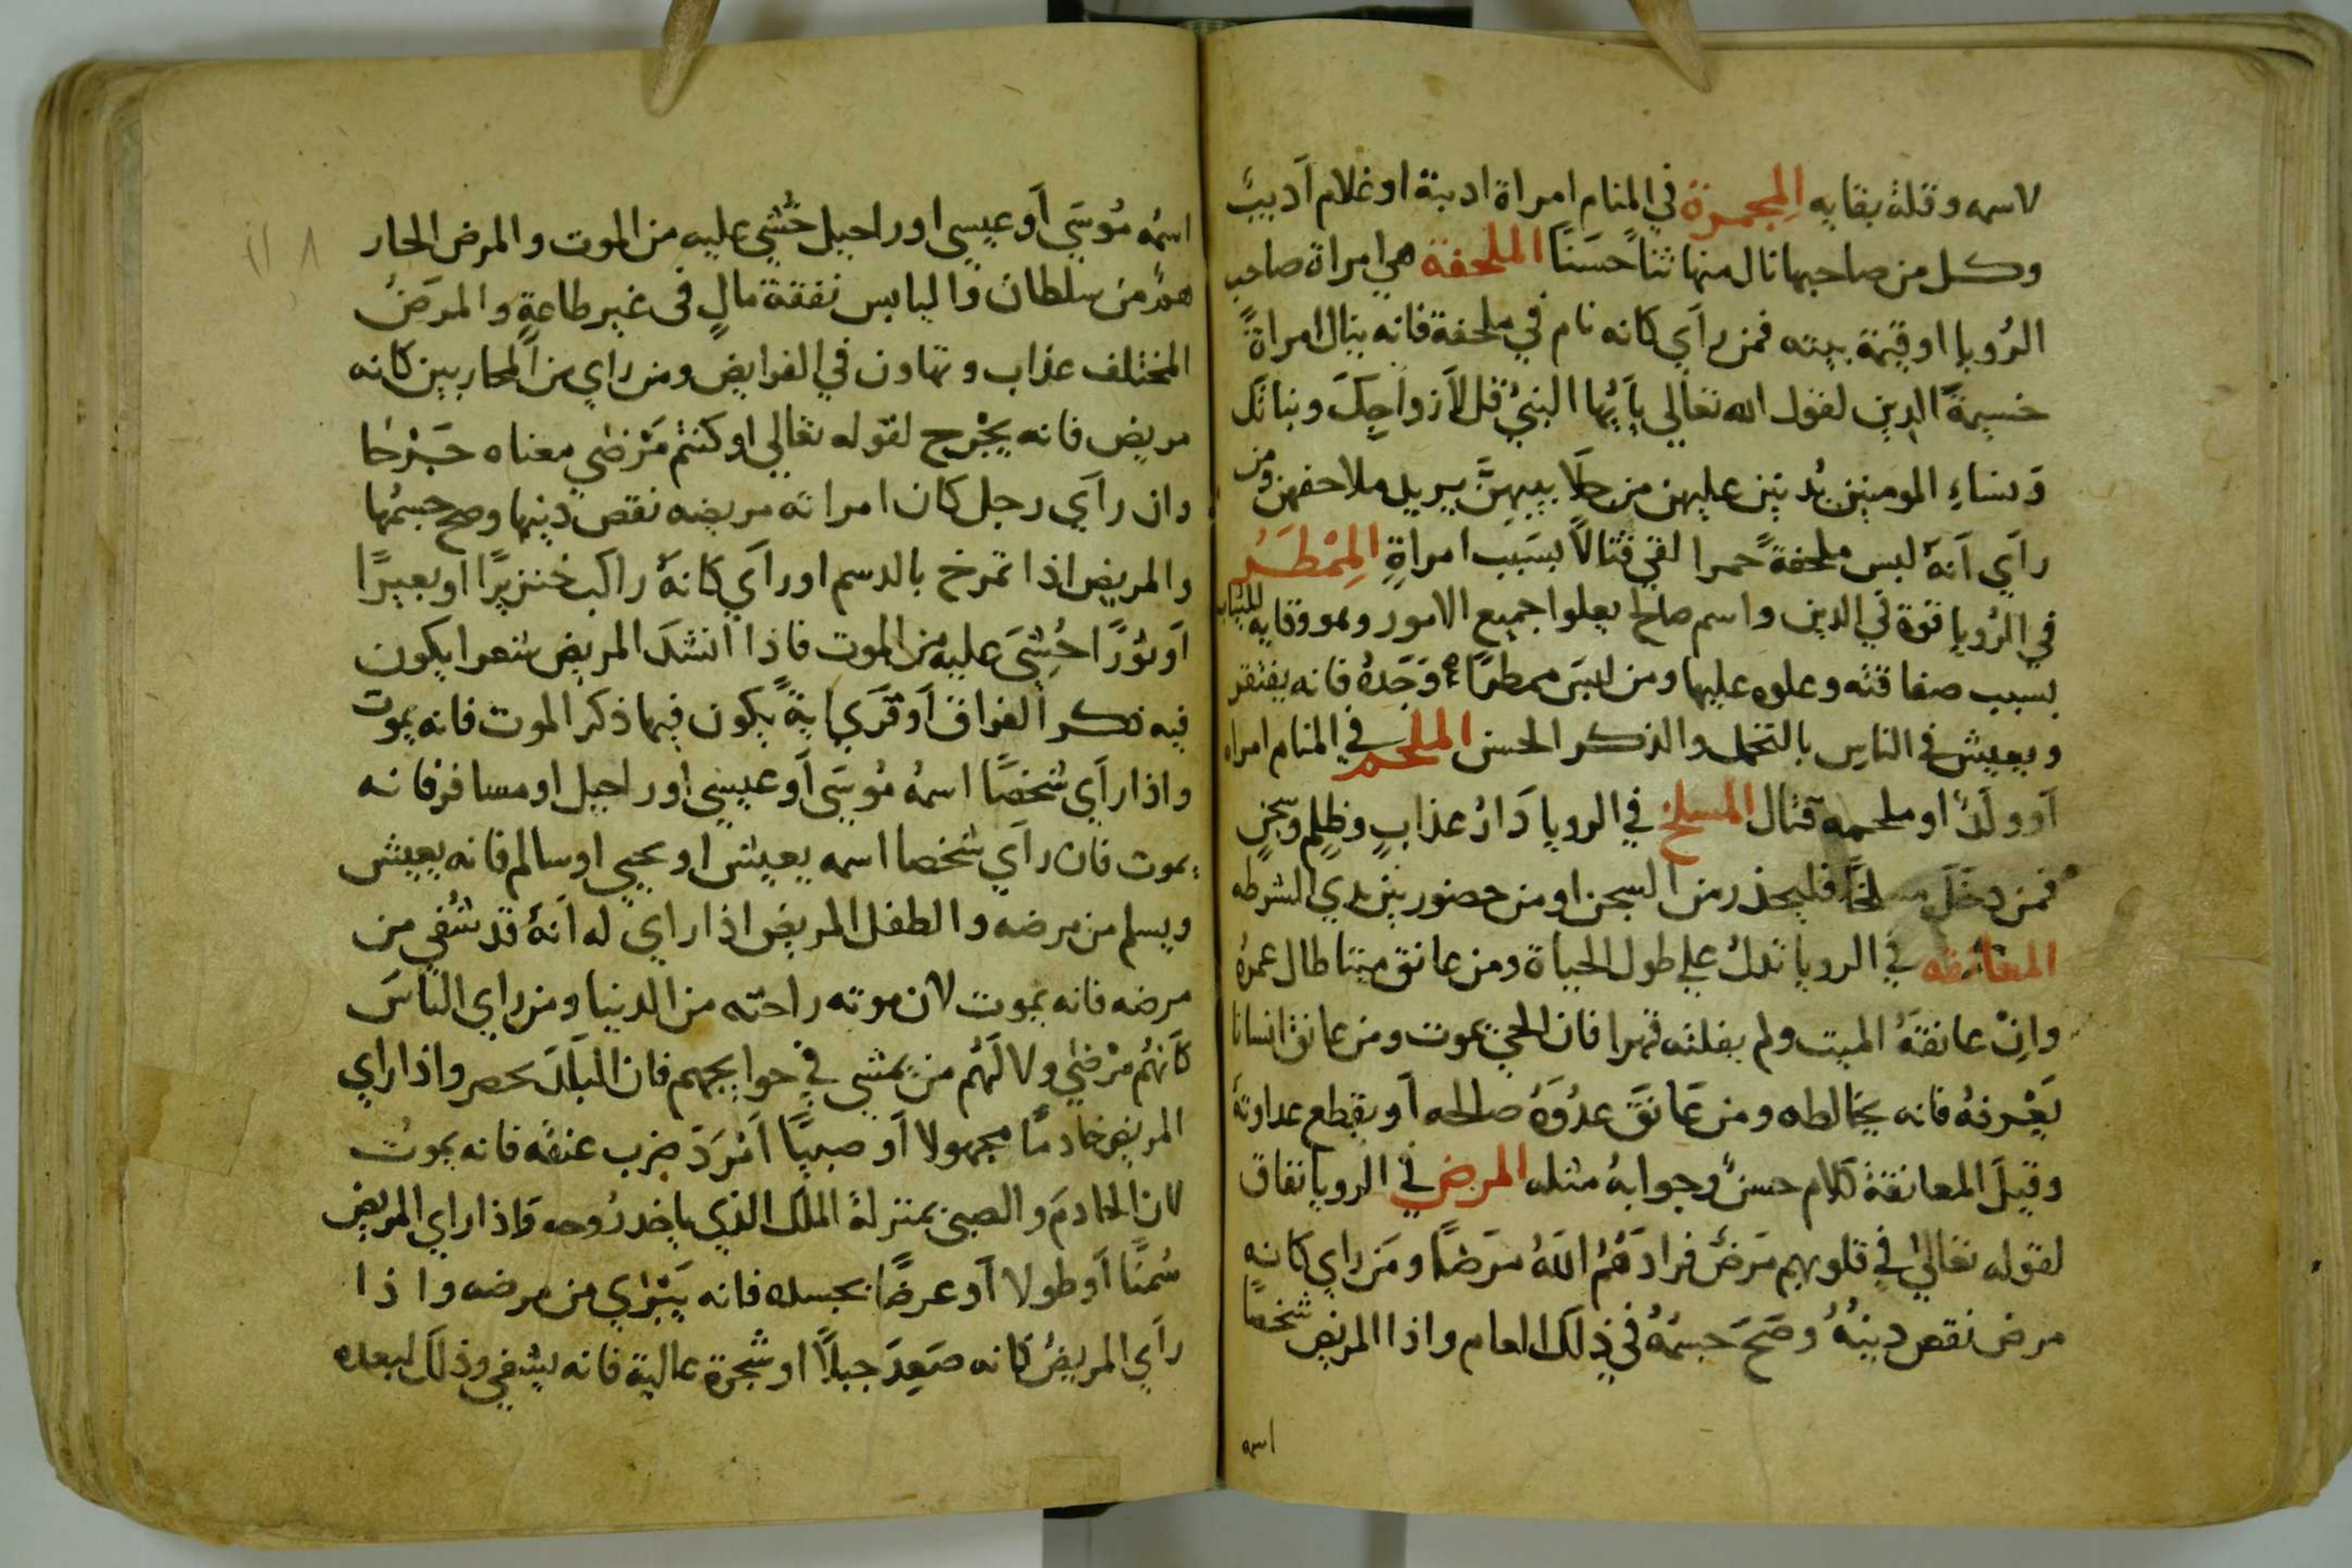 لاسمه وقلة بقايه المِجمرة في المنام امراة ادبية او غلام اَديبٌ
وكل من صاحبها نال منها ثناً حسَناً الملحفة هي امراة صاحب
الرُويا او قيمة بيته فمن راَي كانه نام في ملحفة فانه ينال امراةً
خسيمةَ الدين لقول الله تعالي ياَيُّها النبيُ قل لاَزواجِكَ وبناتَك
وَنساءِ المومنين يُدنين عليهن من جلَابيبهِنَّ يريد ملاحفهن ومن
راَي اَنهُ لبس ملحفةً حمرا لقي قتالاً بسَبَب امراةٍ المِمْطَرُ
في الرُويا قوة في الدين واسم صالح يعلوا جميع الامور وهو وقايه للثياب
بسبب صفاقته وعلوه عليها ومن لبسَ ممطرًا وَحَدهُ فانه يفتقر
ويعيش في الناس بالتجمل والذكر الحسن الملحم في المنام امراه
اَو ولَدٌ او ملحمه قتال المسلخ في الرويا دَارُ عذابٍ وظلمٍ وسجنٍ
فمن دخَلَ مسلخًا فليحذر من السجن او من حضور بين يدي الشرطه
المعانقه في الرويا تدلُ علي طول الحياة ومن عانق ميتا طال عمرهُ
وانْ عانقهُ الميت ولم يفلته قهرا فان الحيَّ يموت ومن عانق انسانا
يَعْرفهُ فانه يخالطه ومن عَانقَ عدُوّهُ صالحه اَو يقطع عداوتهَ
وقيلَ المعانقة كلام حسنٌ وجوابهُ مثله المرض في الرويا نفاق
لقوله تعالي في قلوبهم مَرَضٌ فزادَهُمُ اللهُ مَرَضًا ومَن راي كانه
مرض نقص دينهُ وصَحَ جسمهُ في ذلك العام واذا المريض شخصًا
اسمه
اسمُه مُوسَي اَو عيسي او راحيل خُشي عليه من الموت والمرض الحار
همٌ من سلطان واليابس نفقة مالٍ في غير طاعةٍ والمرَضُ
المختلف عذاب وتهاون في الفرايض ومن راي من المحاربين كانه
مريض فانه يُجْرح لقوله تعالي او كنتم مَرْضي معناه جَرْحَا
وان راَي رجل كان امراته مريضه نقص دينها وصح جسمُها
والمريض اذا تمرخ بالدسم او راَي كانهُ راكب خنزيرًا او بعيرًا
اَو ثوْرًا خُشيَ عليه من الموت فاذا انشدَ المريض شعرا يكون
فيه ذكر الفراق اَو قَرَي ايةً يكون فيها ذكر الموت فانه يموت
واذا راَي شخصًا اسمهُ مُوسَي اَو عيسي او راحيل او مسافر فانه
يموت فان راَي شخصا اسمه يعيش او يحيي او سالم فانه يعيش
ويسلم من مرضه والطفل المريض اذا راي له اَنهُ قد شُفي من
مرضه فانه يموت لان موته راحته من الدنيا ومن راي الناسَ
كاَنهُم مرْضي ولا لَهُم من يمشي في حوايجهم فان البَلَدَ يحصر واذا راي
المريض خادمًا مجهولا اَو صبيًا اَمْرَدَ ضرب عنقه فانه يموتُ
لان الخادمَ والصبي بمنزلة الملَك الذي ياخد رُوحه فاذا راي المريض
سُمنًا اَو طولا اَو عرضًا بجسده فانه يَبْرَي من مرضه واذا
راَي المريضُ كانه صَعِدَ جبلاً او شجرة عالية فانه يشفي وذلك لبعده